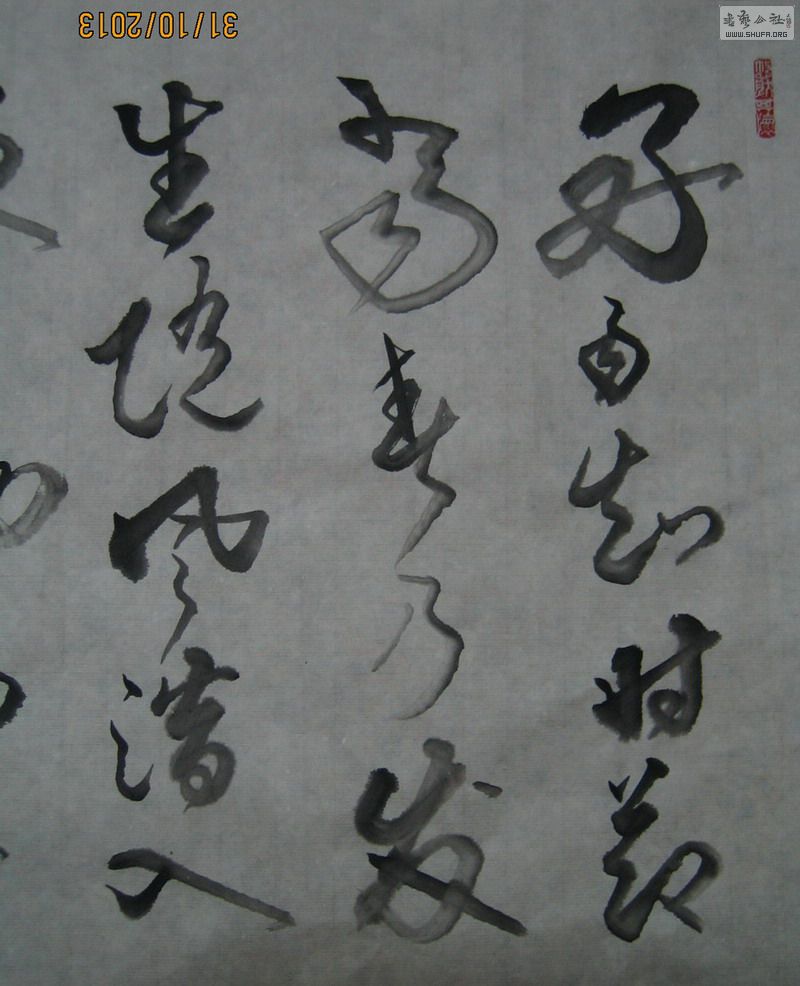 好雨知时节
当春乃发
生随风潜入
31/10/2013
書藝公社
WWW.SHUFA.ORG